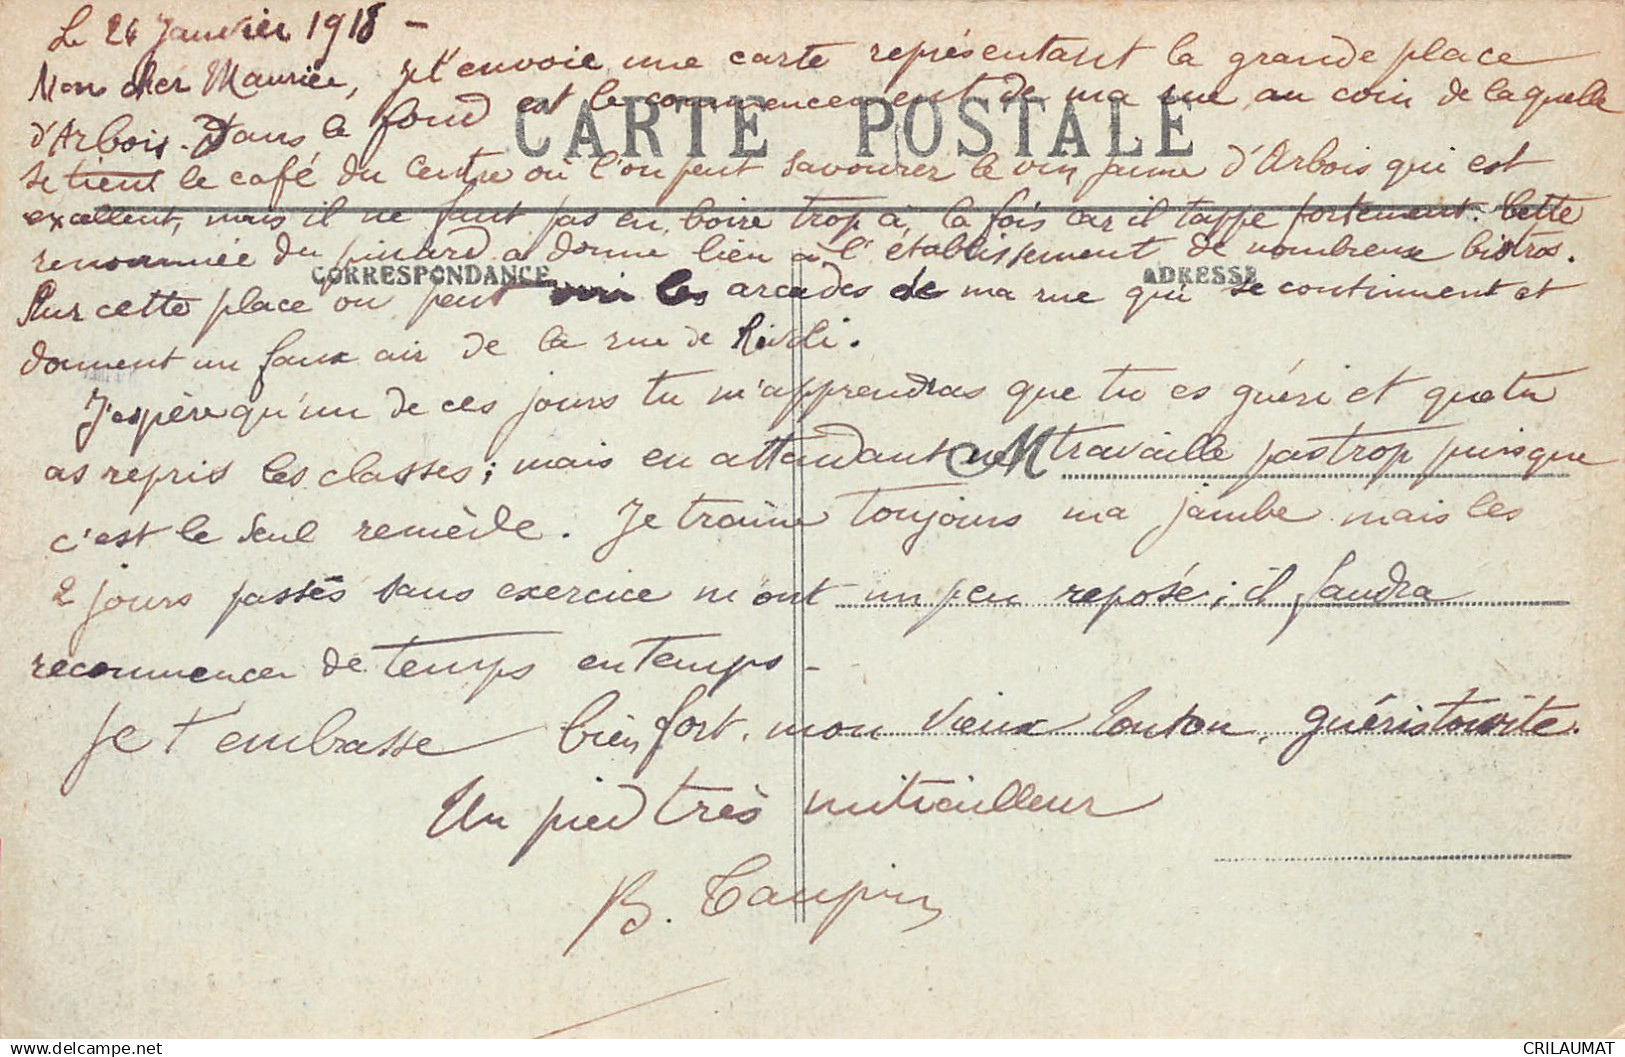 Le 26 Janvier 1918 -
Mon cher Maurice, je t'envoie une carte représentant la grande place
d'Arbois. Dans le fond est le commencement de ma rue au coin de laquelle
CARTE POSTALE
se tient le café du Centre où l'on peut savourer le vin jaune d'Arbois qui est
excellent, mais il ne faut pas en boire trop à la fois car il tappe fortement. Cette
renommée du pinard a donné lieu à l'établissement de nombreux bistros.
CORRESPONDANCE ADRESSE
Sur cette place on peut voir les arcades de ma rue qui se continuent et
donnent un faux air de la rue de Rivoli.
J'espère qu'un de ces jours tu m'apprendras que tu es guéri et que tu
as repris les classes; mais en attendant ne M travaille pas trop puisque
c'est le seul remède. Je traîne toujours ma jambe mais les
2 jours passés sans exercice m'ont un peu reposé; il faudra
recommencer de temps en temps -
Je t'embrasse bien fort, mon vieux tonton, guéris tou vite.
Un pied très mitrailleur
B. Taupin
CRILAUMAT